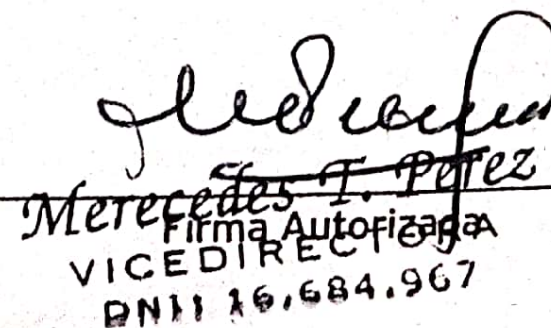 Merecedes T. Perez
Firma Autorizada
VICEDIRECTORA
DNI: 16.684.967